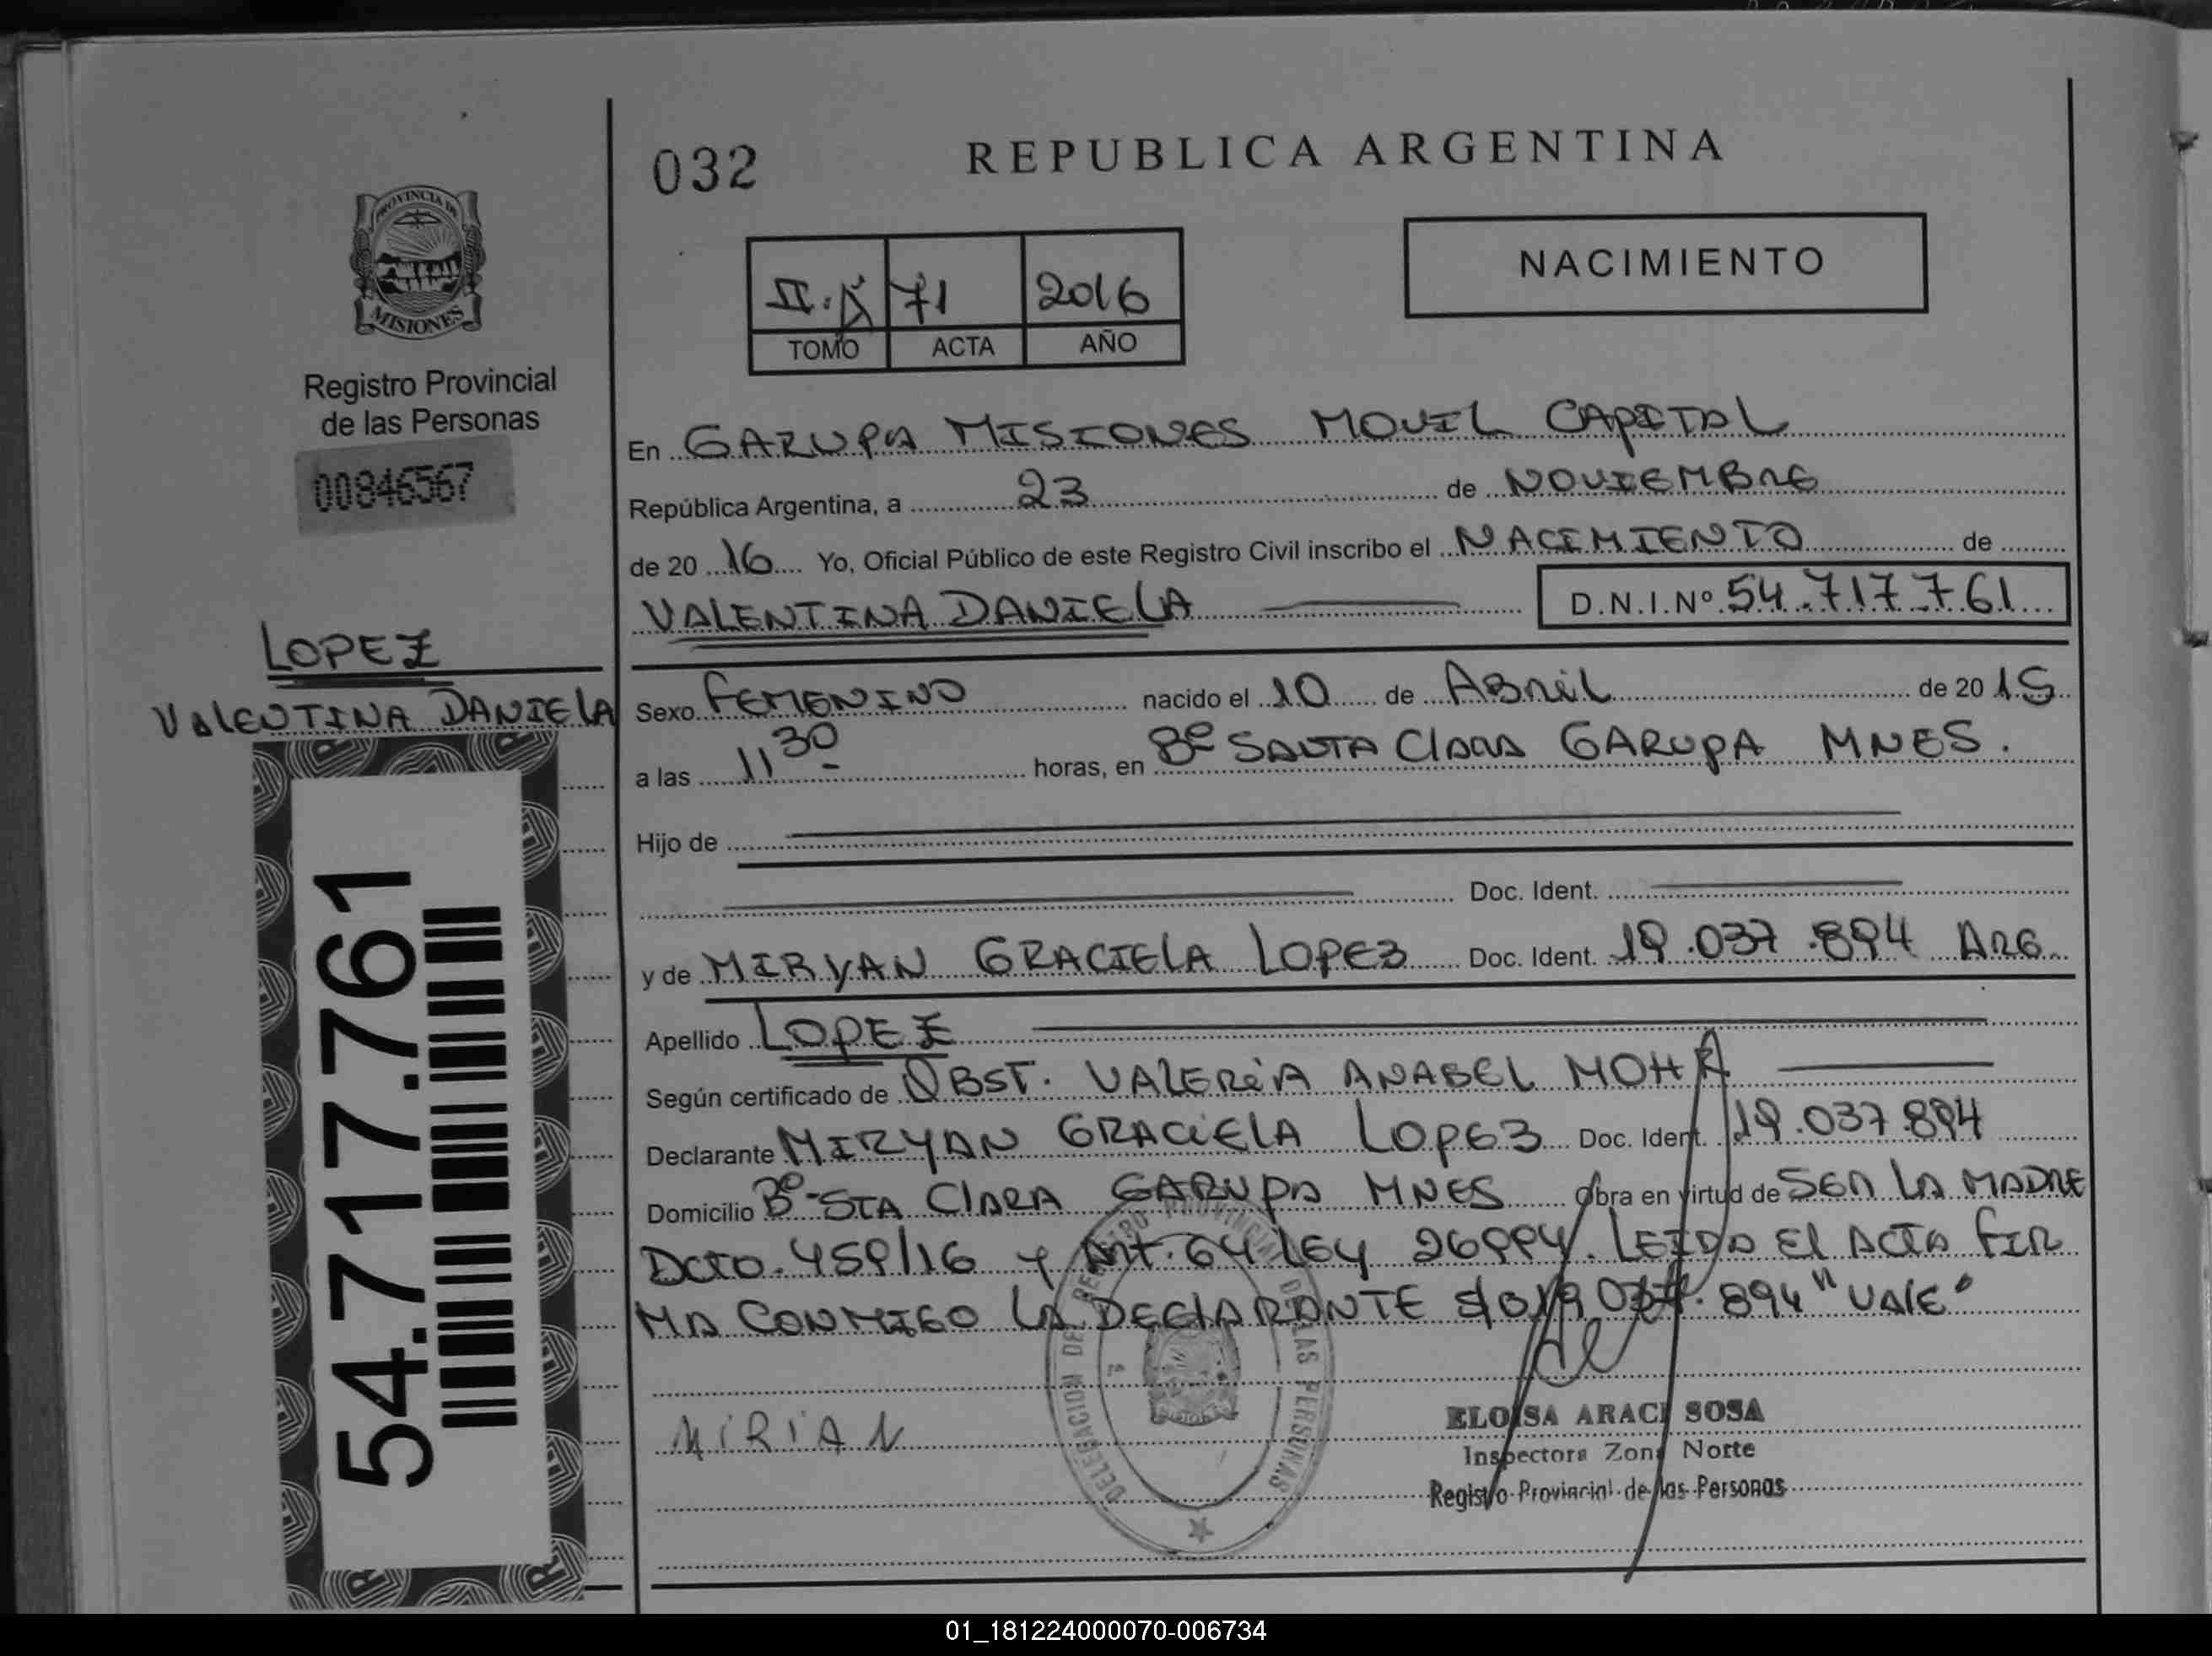 032
REPUBLICA ARGENTINA
PROVINCIA DE
MISIONES
Registro Provincial
de las Personas
00846567
71 2016
TOMO ACTA AÑO
NACIMIENTO
En GARUPA MISIONES MOVIL CAPITAL
República Argentina, a 23 de NOVIEMBRE
de 20 16 Yo, Oficial Público de este Registro Civil inscribo el NACIMIENTO de
VALENTINA DANIELA D.N.I.Nº 54.717.761
LOPEZ
VALENTINA DANIELA
Sexo FEMENINO nacido el 10 de ABRIL de 20 15
a las 11 30 horas, en Bº SANTA CLARA GARUPA MNES.
Hijo de
Doc. Ident.
y de MIRYAN GRACIELA LOPEZ Doc. Ident. 19.037.894 ARG.
Apellido LOPEZ
Según certificado de OBST. VALERIA ANABEL MOHR
Declarante MIRYAN GRACIELA LOPEZ Doc. Ident. 19.037.894
Domicilio Bº STA CLARA GARUPA MNES Obra en virtud de SER LA MADRE
Dcto. 459/16 y Art. 64 LEY 26994. LEIDO EL ACTA FIR
MA CONMIGO LA DECLARANTE S/B 19.037.894 "VALE"
MIRIAN
DELEGACION DEL REGISTRO PROVINCIAL DE LAS PERSONAS
ELOISA ARACI SOSA
Inspectora Zona Norte
Registro Provincial de las Personas
54.717.761
01_181224000070-006734